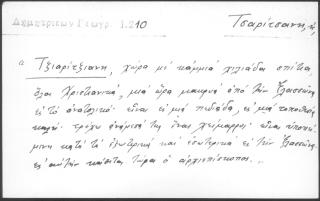 Δημητριεων Γεωγρ. 1.210
Τσαρίτσανη, ἡ,
α Τζιαρίτζιανη, χώρα μὲ κάμμιὰ χιλιάδα σπίτια,
ὅλοι Χριστιανικά, μιὰ ὥρα μακρυὰ ἀπὸ τὴν Ἐλασσῶνα
εἰς τὸ ἀνατολικό· εἶναι εἰς μιὰ πεδιάδα, εἰς μιὰ τοποθεσία
καλή· τρέχει ἀνάμεσά της ἕνας χείμαρρος· εἶναι ὑποκει-
μένη κατὰ τὰ ἐξωτερικὰ καὶ ἐσωτερικὰ εἰς τὴν Ἐλασσῶνα·
εἰς αὐτὴν κάθεται τώρα ὁ ἀρχιεπίσκοπος...